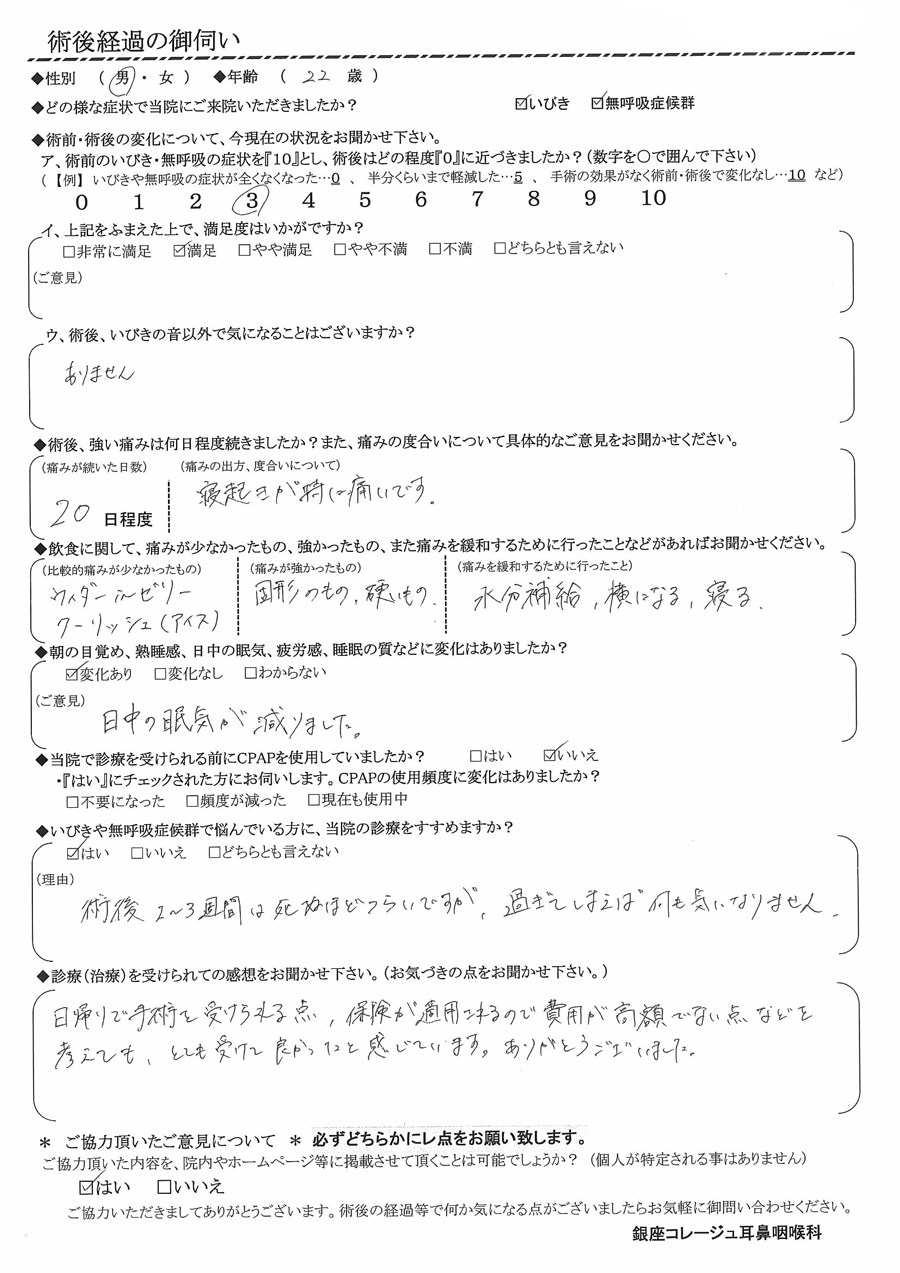 術後経過の御伺い
◆性別 (男・女) ◆年齢 (22歳)
◆どの様な症状で当院にご来院いただきましたか? ☑いびき ☑無呼吸症候群
◆術前・術後の変化について、今現在の状況をお聞かせ下さい。
ア、術前のいびき・無呼吸の症状を『10』とし、術後はどの程度『0』に近づきましたか?(数字を○で囲んで下さい)
(【例】いびきや無呼吸の症状が全くなくなった…0、半分くらいまで軽減した…5、手術の効果がなく術前・術後で変化なし…10 など)
0 1 2 3 4 5 6 7 8 9 10
イ、上記をふまえた上で、満足度はいかがですか?
□非常に満足 ☑満足 □やや満足 □やや不満 □不満 □どちらとも言えない
(ご意見)
ウ、術後、いびきの音以外で気になることはございますか?
ありません
◆術後、強い痛みは何日程度続きましたか?また、痛みの度合いについて具体的なご意見をお聞かせください。
(痛みが続いた日数) (痛みの出方、度合いについて)
寝起きが特に痛いです.
20 日程度
◆飲食に関して、痛みが少なかったもの、強かったもの、また痛みを緩和するために行ったことなどがあればお聞かせください。
(比較的痛みが少なかったもの) (痛みが強かったもの) (痛みを緩和するために行ったこと)
ウィダーinゼリー 固形のもの, 硬いもの. 水分補給, 横になる, 寝る.
クーリッシュ(アイス)
◆朝の目覚め、熟睡感、日中の眠気、疲労感、睡眠の質などに変化はありましたか?
☑変化あり □変化なし □わからない
(ご意見)
日中の眠気が減りました。
◆当院で診療を受けられる前にCPAPを使用していましたか? □はい ☑いいえ
・『はい』にチェックされた方にお伺いします。CPAPの使用頻度に変化はありましたか?
□不要になった □頻度が減った □現在も使用中
◆いびきや無呼吸症候群で悩んでいる方に、当院の診療をすすめますか?
☑はい □いいえ □どちらとも言えない
(理由)
術後2~3週間は死ぬほどつらいですが、過ぎてしまえば何も気になりません.
◆診療(治療)を受けられての感想をお聞かせ下さい。(お気づきの点をお聞かせ下さい。)
日帰りで手術を受けられる点, 保険が適用されるので費用が高額でない点などを
考えても、とても受けて良かったと感じています。ありがとうございました。
* ご協力頂いたご意見について * 必ずどちらかにレ点をお願い致します。
ご協力頂いた内容を、院内やホームページ等に掲載させて頂くことは可能でしょうか? (個人が特定される事はありません)
☑はい □いいえ
ご協力いただきましてありがとうございます。術後の経過等で何か気になる点がございましたらお気軽に御問い合わせください。
銀座コレージュ耳鼻咽喉科